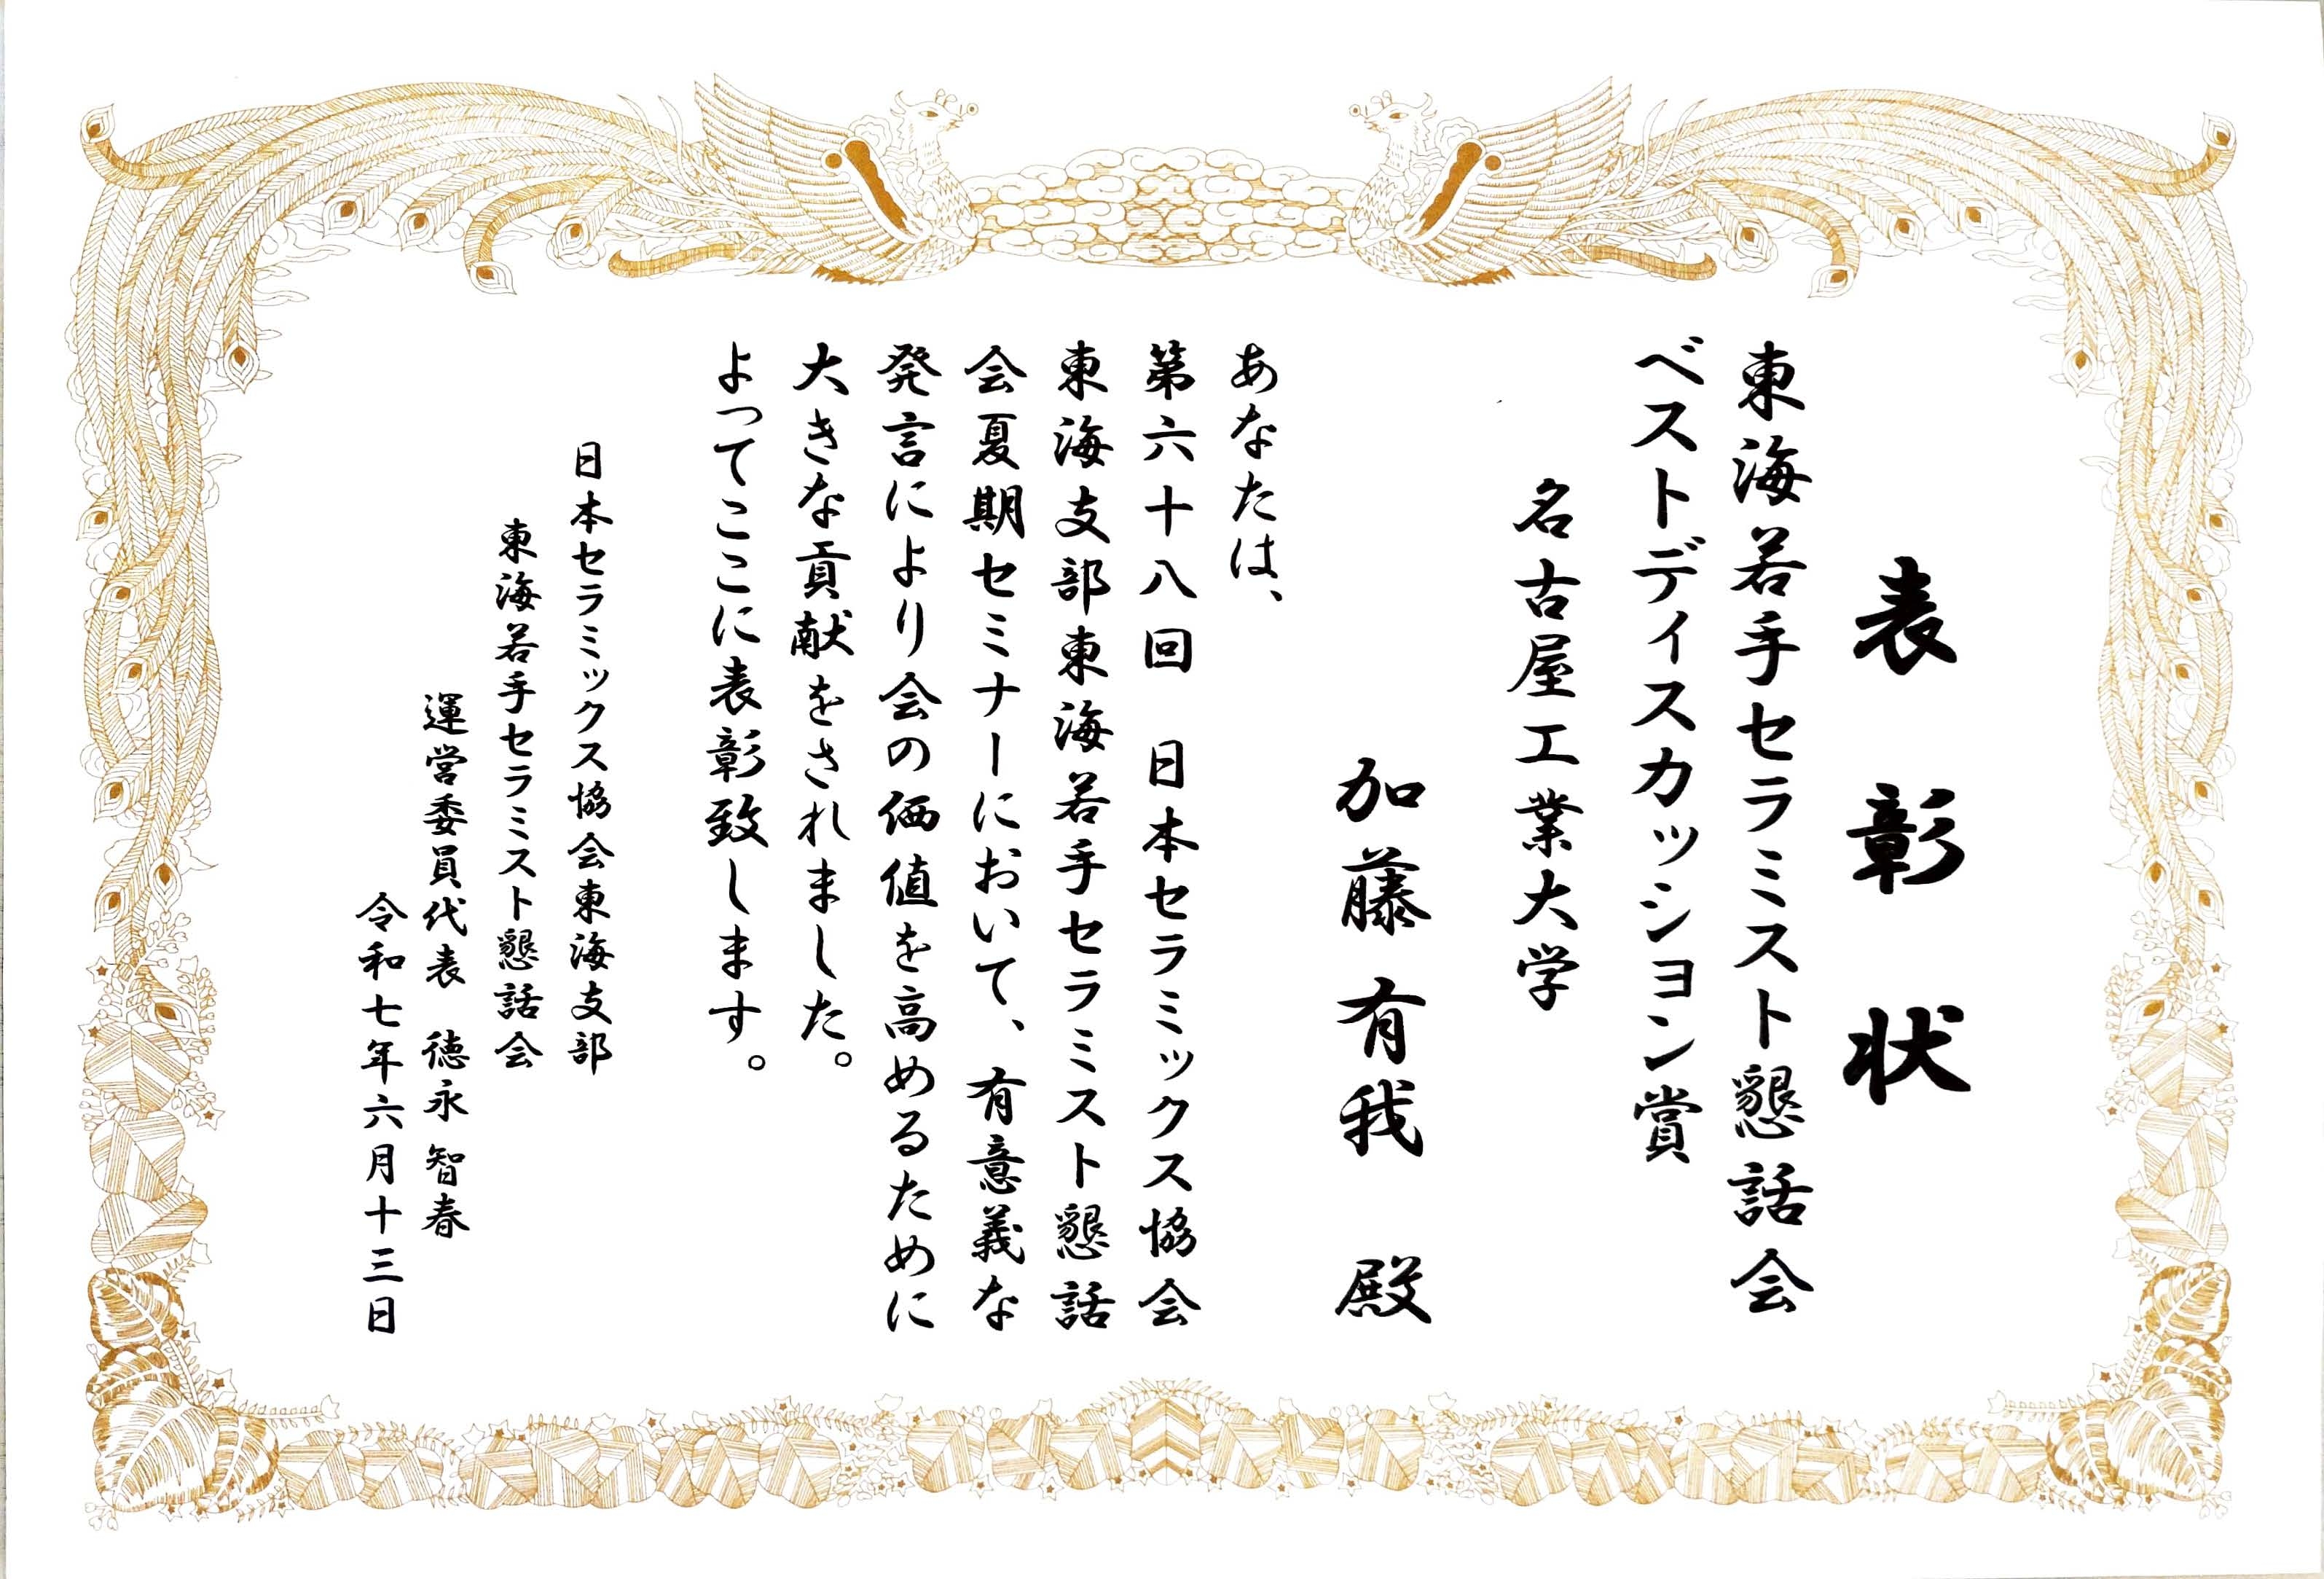 表彰状
東海若手セラミスト懇話会
ベストディスカッション賞
名古屋工業大学
加藤有我 殿
あなたは、
第六十八回 日本セラミックス協会
東海支部東海若手セラミスト懇話
会夏期セミナーにおいて、有意義な
発言により会の価値を高めるために
大きな貢献をされました。
よってここに表彰致します。
日本セラミックス協会東海支部
東海若手セラミスト懇話会
運営委員代表 徳永智春
令和七年六月十三日